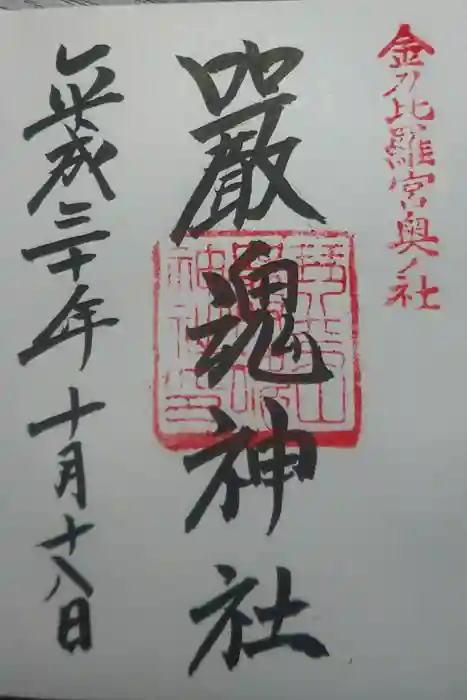 金刀比羅宮奥ノ社
嚴魂神社
平成三十年十月十八日